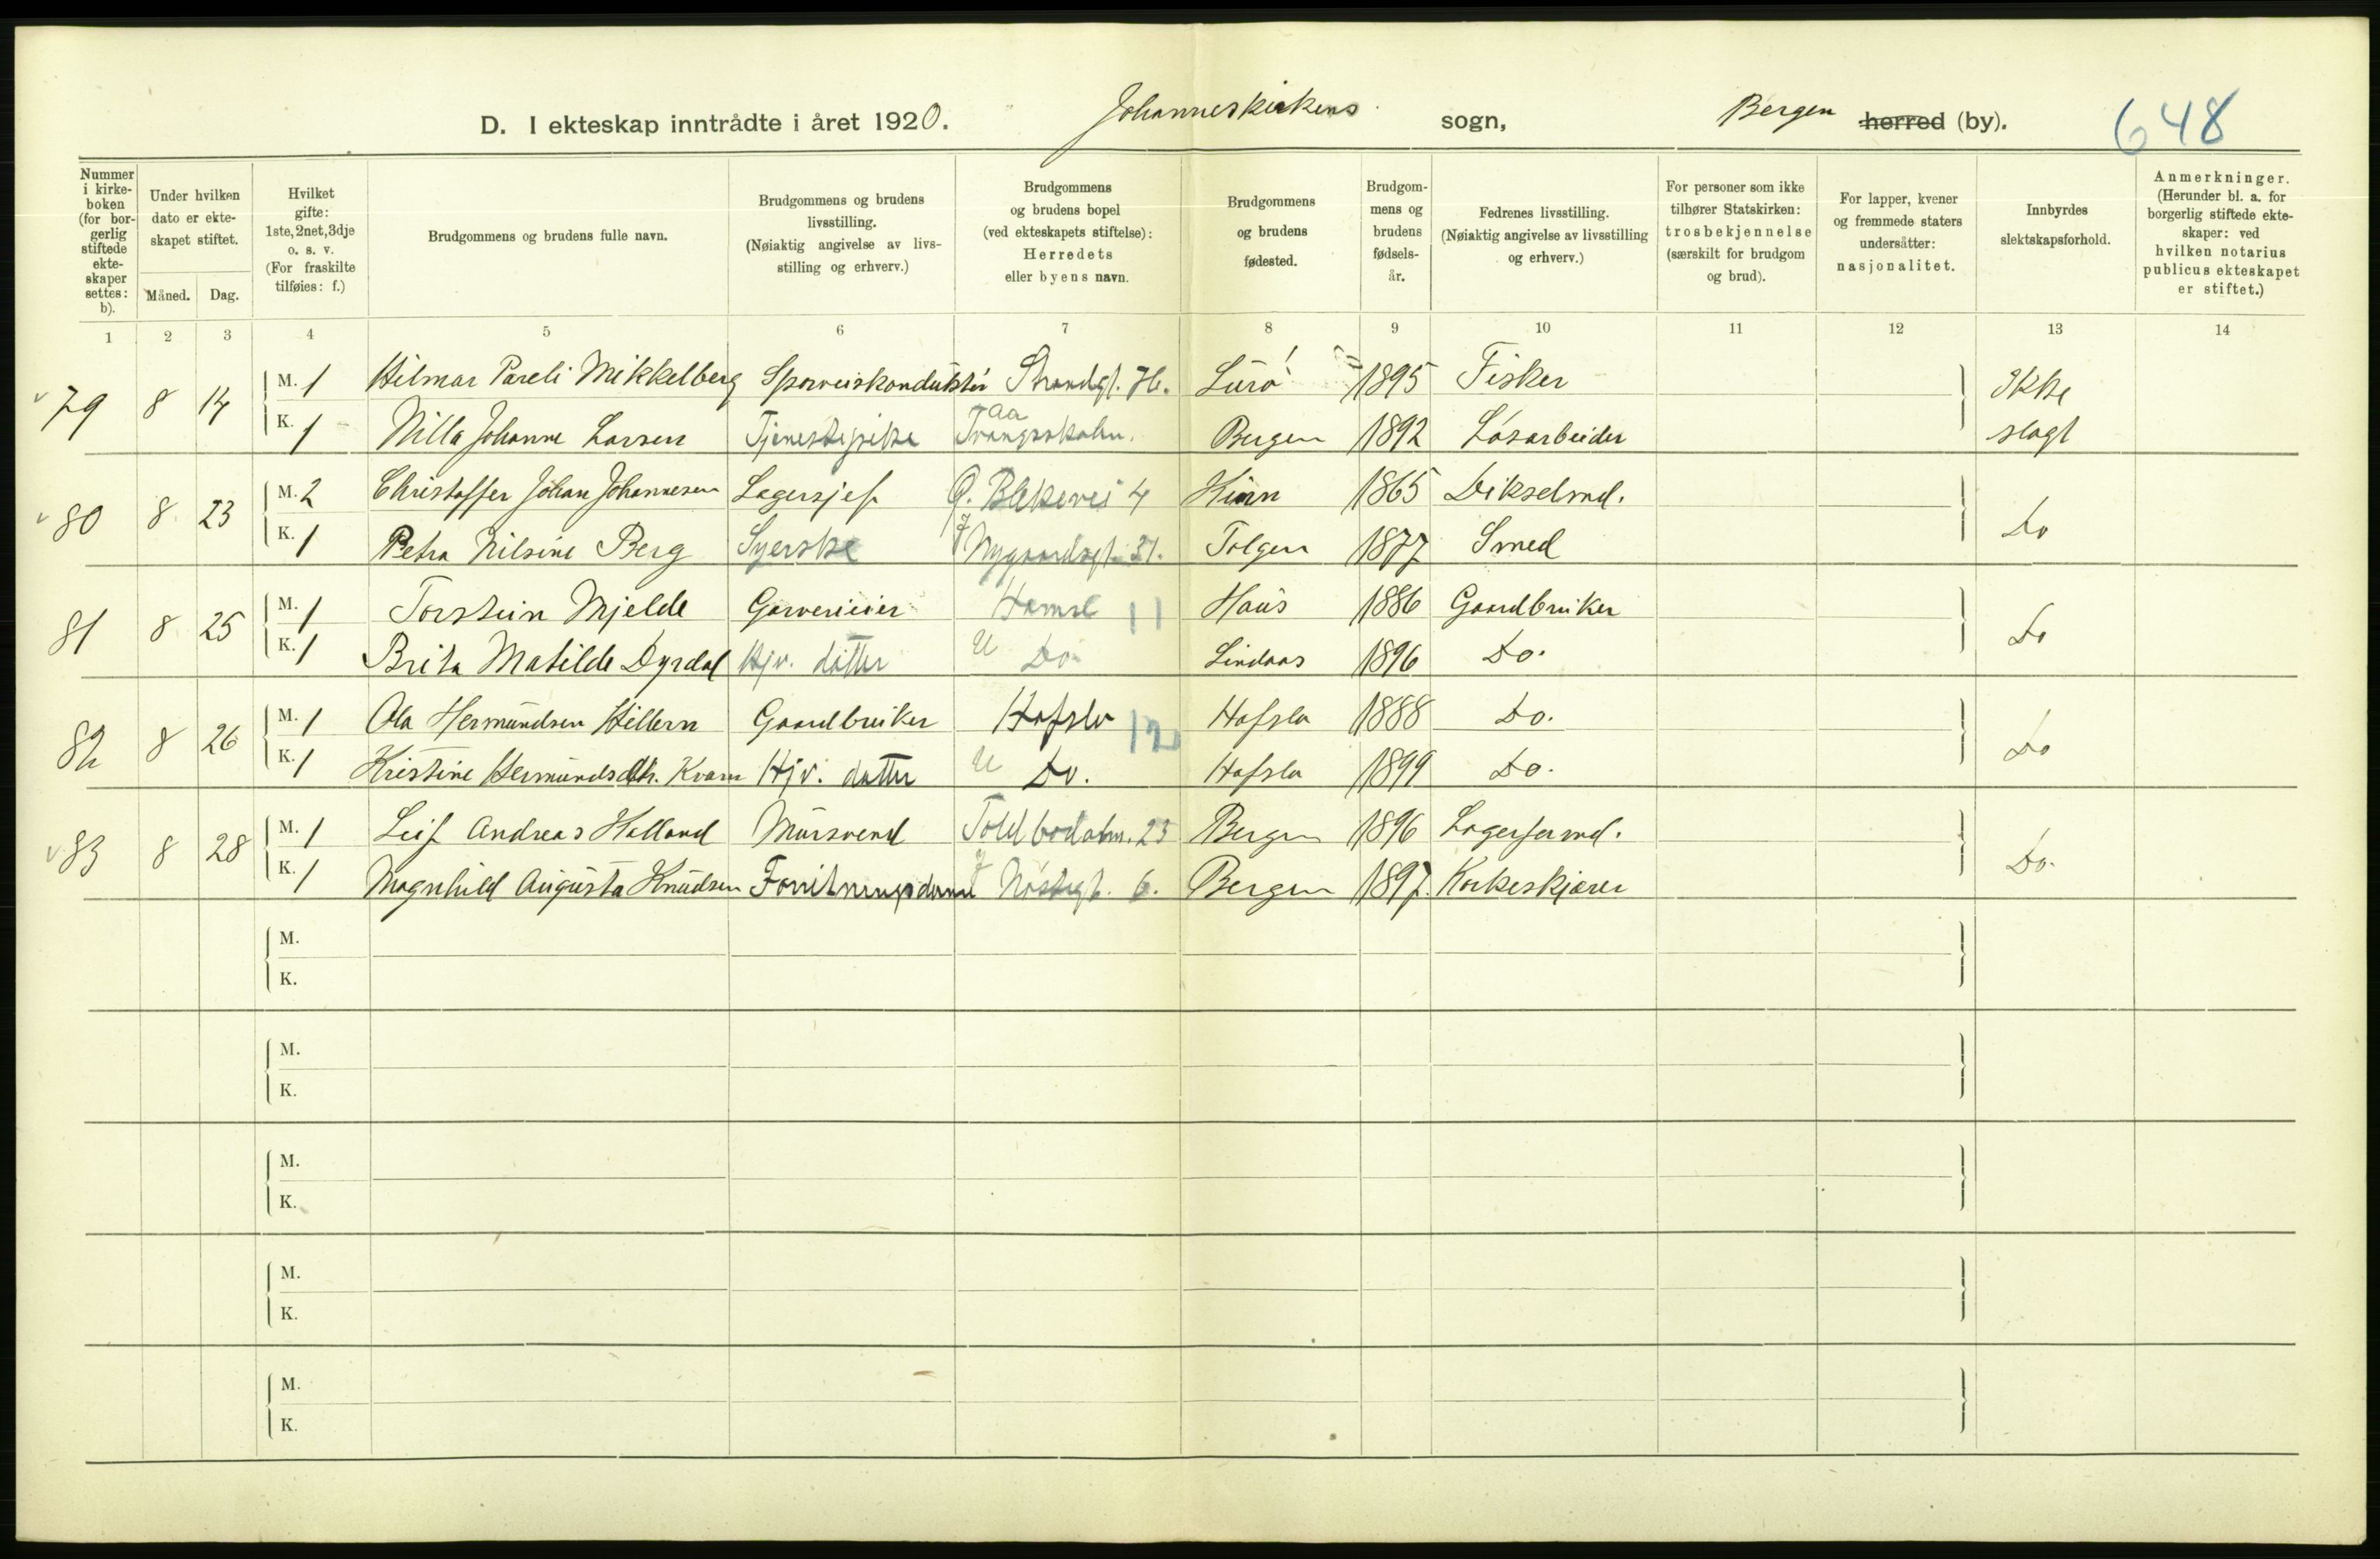 D. I ekteskap inntrådte i året 1920. Johanneskirkens sogn, Bergen herred (by). 648
Nummer i kirkeboken (for borgerlig stiftede ekteskaper settes: b).
Under hvilken dato er ekteskapet stiftet.
Måned. Dag.
Hvilket gifte: 1ste, 2net, 3dje o. s. v. (For fraskilte tilføies: f.)
Brudgommens og brudens fulle navn.
Brudgommens og brudens livsstilling. (Nøiaktig angivelse av livsstilling og erhverv.)
Brudgommens og brudens bopel (ved ekteskapets stiftelse): Herredets eller byens navn.
Brudgommens og brudens fødested.
Brudgommens og brudens fødselsår.
Fedrenes livsstilling. (Nøiaktig angivelse av livsstilling og erhverv.)
For personer som ikke tilhører Statskirken: trosbekjennelse (særskilt for brudgom og brud).
For lapper, kvener og fremmede staters undersåtter: nasjonalitet.
Innbyrdes slektskapsforhold.
Anmerkninger. (Herunder bl. a. for borgerlig stiftede ekteskaper: ved hvilken notarius publicus ekteskapet er stiftet.)
1 2 3 4 5 6 7 8 9 10 11 12 13 14
79 8 14 M. 1 Hilmar Pareli Mikkelberg Sporveiskonduktør Strandgt. Lurø 1895 Fisker Ikke
K. 1 Nilla Johanne Larsen Tjenestepike Bergen 1892 Løsarbeider slægt
80 8 23 M. 2 Christoffer Johan Johannesen Lagersjef Blekevei 4 Kinn 1865 Dikselmd. Do
K. 1 Petra Nilsine Berg Syerske Nygaardsgt. 31. Tolgen 1877 Smed
81 8 25 M. 1 Torstein Mjelde Garverieier Hamre 11 Haus 1886 Gaardbruker Do
K. 1 Brita Matilde Dyrdal Hjv. datter U Do. Lindaas 1896 Do.
82 8 26 M. 1 Ola Hermundsen Hillern Gaardbruker Hafslo 12 Hafslo 1888 Do. Do
K. 1 Kristine Hermundsdtr. Kvam Hjv. datter U Do. Hafslo 1899 Do.
83 8 28 M. 1 Leif Andreas Halland Mursvend Toldbodalm. 25 Bergen 1896 Lagerformd. Do.
K. 1 Magnhild Augusta Knudsen Forretningsdame Nøstegt. 6. Bergen 1897 Korkeskjærer
M.
K.
M.
K.
M.
K.
M.
K.
M.
K.